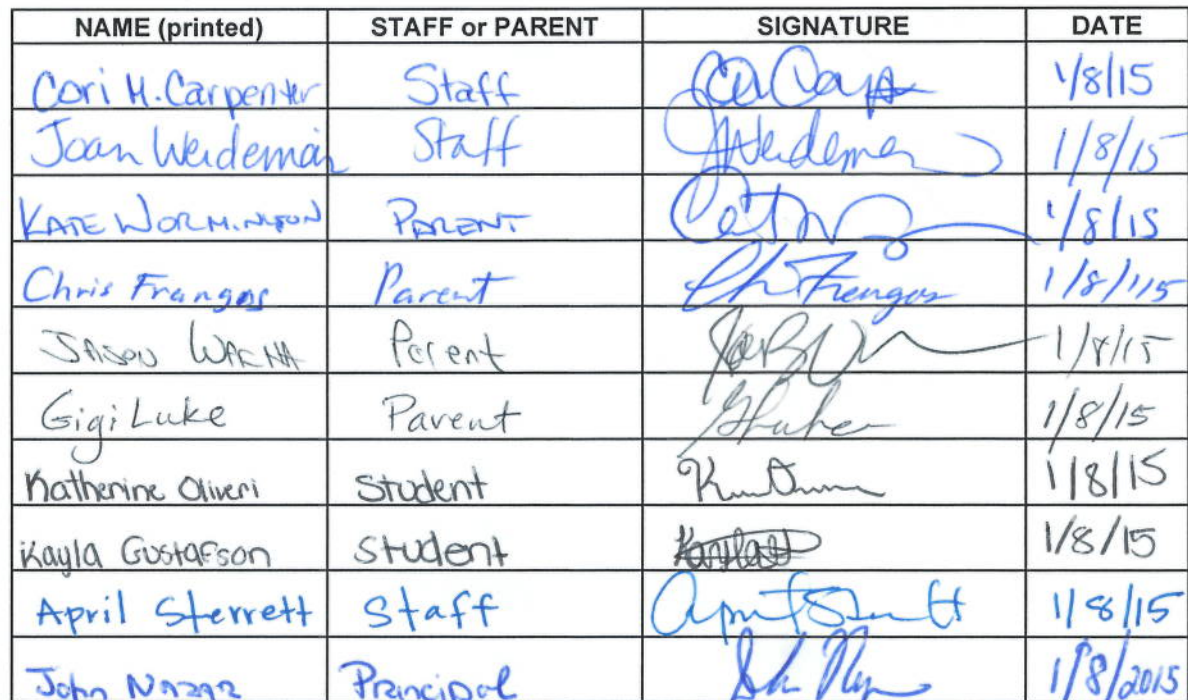 NAME (printed) STAFF or PARENT SIGNATURE DATE
Cori M. Carpenter Staff 1/8/15
Joan Weideman Staff JWeideman 1/8/15
KATE WORMINGTON PARENT 1/8/15
Chris Frangos Parent Ch Frangos 1/8/15
JASON Parent 1/8/15
Gigi Luke Parent 1/8/15
Katherine Oliveri Student 1/8/15
Kayla Gustafson Student 1/8/15
April Sterrett Staff April Sterrett 1/8/15
John NAZAR Principal 1/8/2015